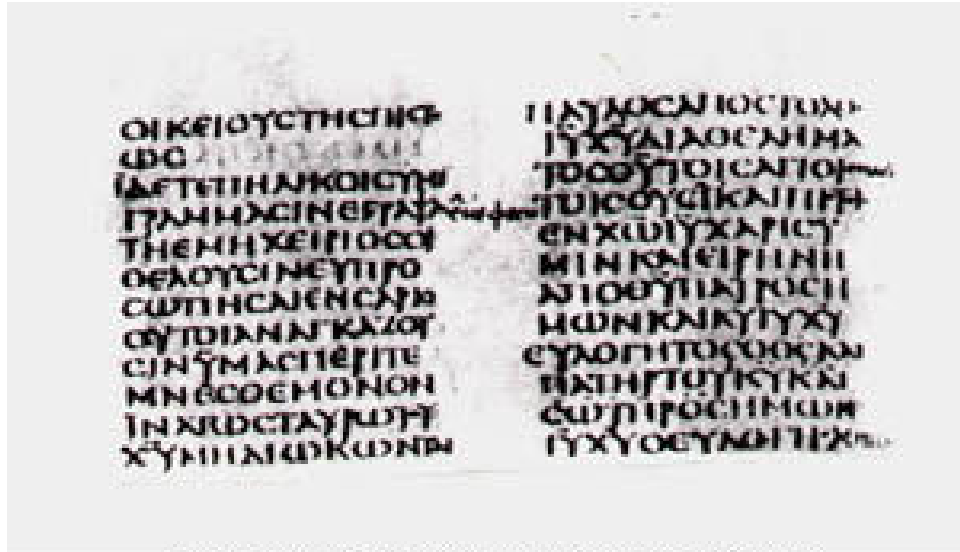 ΟΙΚΕΙΟΥϹΤΗϹΠΙϹΤΕ
ΩϹ
ΙΔΕΤΕΠΗΛΙΚΟΙϹΥΜΙ
ΓΡΑΜΜΑϹΙΝΕΓΡΑΨΑ
ΤΗΕΜΗΧΕΙΡΙΟϹΟΙ
ΘΕΛΟΥϹΙΝΕΥΠΡΟ
ϹΩΠΗϹΑΙΕΝϹΑΡΚΙ
ΟΥΤΟΙΑΝΑΓΚΑΖΟΥ
ϹΙΝΫΜΑϹΠΕΡΙΤΕ
ΜΝΕϹΘΕΜΟΝΟΝ
ΙΝΑΤΩϹΤΑΥΡΩΤΟΥ
Χ̅Υ̅ΜΗΔΙΩΚΩΝΤΑΙ
ΠΑΥΛΟϹΑΠΟϹΤΟΛΟϹ
Ι̅Υ̅Χ̅Υ̅ΔΙΑΘΕΛΗΜΑ
ΤΟϹΘ̅Υ̅ΤΟΙϹΑΓΙΟΙϹ
ΤΟΙϹΟΥϹΙΚΑΙΠΙϹΤ
ΕΝΧ̅Ω̅Ι̅Υ̅ΧΑΡΙϹΥ
ΜΙΝΚΑΙΕΙΡΗΝΗ
ΑΠΟΘ̅Υ̅ΠΑΤΡΟϹΗ
ΜΩΝΚΑΙΚ̅Υ̅Ι̅Υ̅Χ̅Υ̅
ΕΥΛΟΓΗΤΟϹΟΘ̅Ϲ̅ΚΑΙ
ΠΑΤΗΡΤΟΥΚ̅Υ̅ΚΑΙ
ϹΩΤΗΡΟϹΗΜΩΝ
Ι̅Υ̅Χ̅Υ̅ΟΕΥΛΟΓΗϹΑϹ